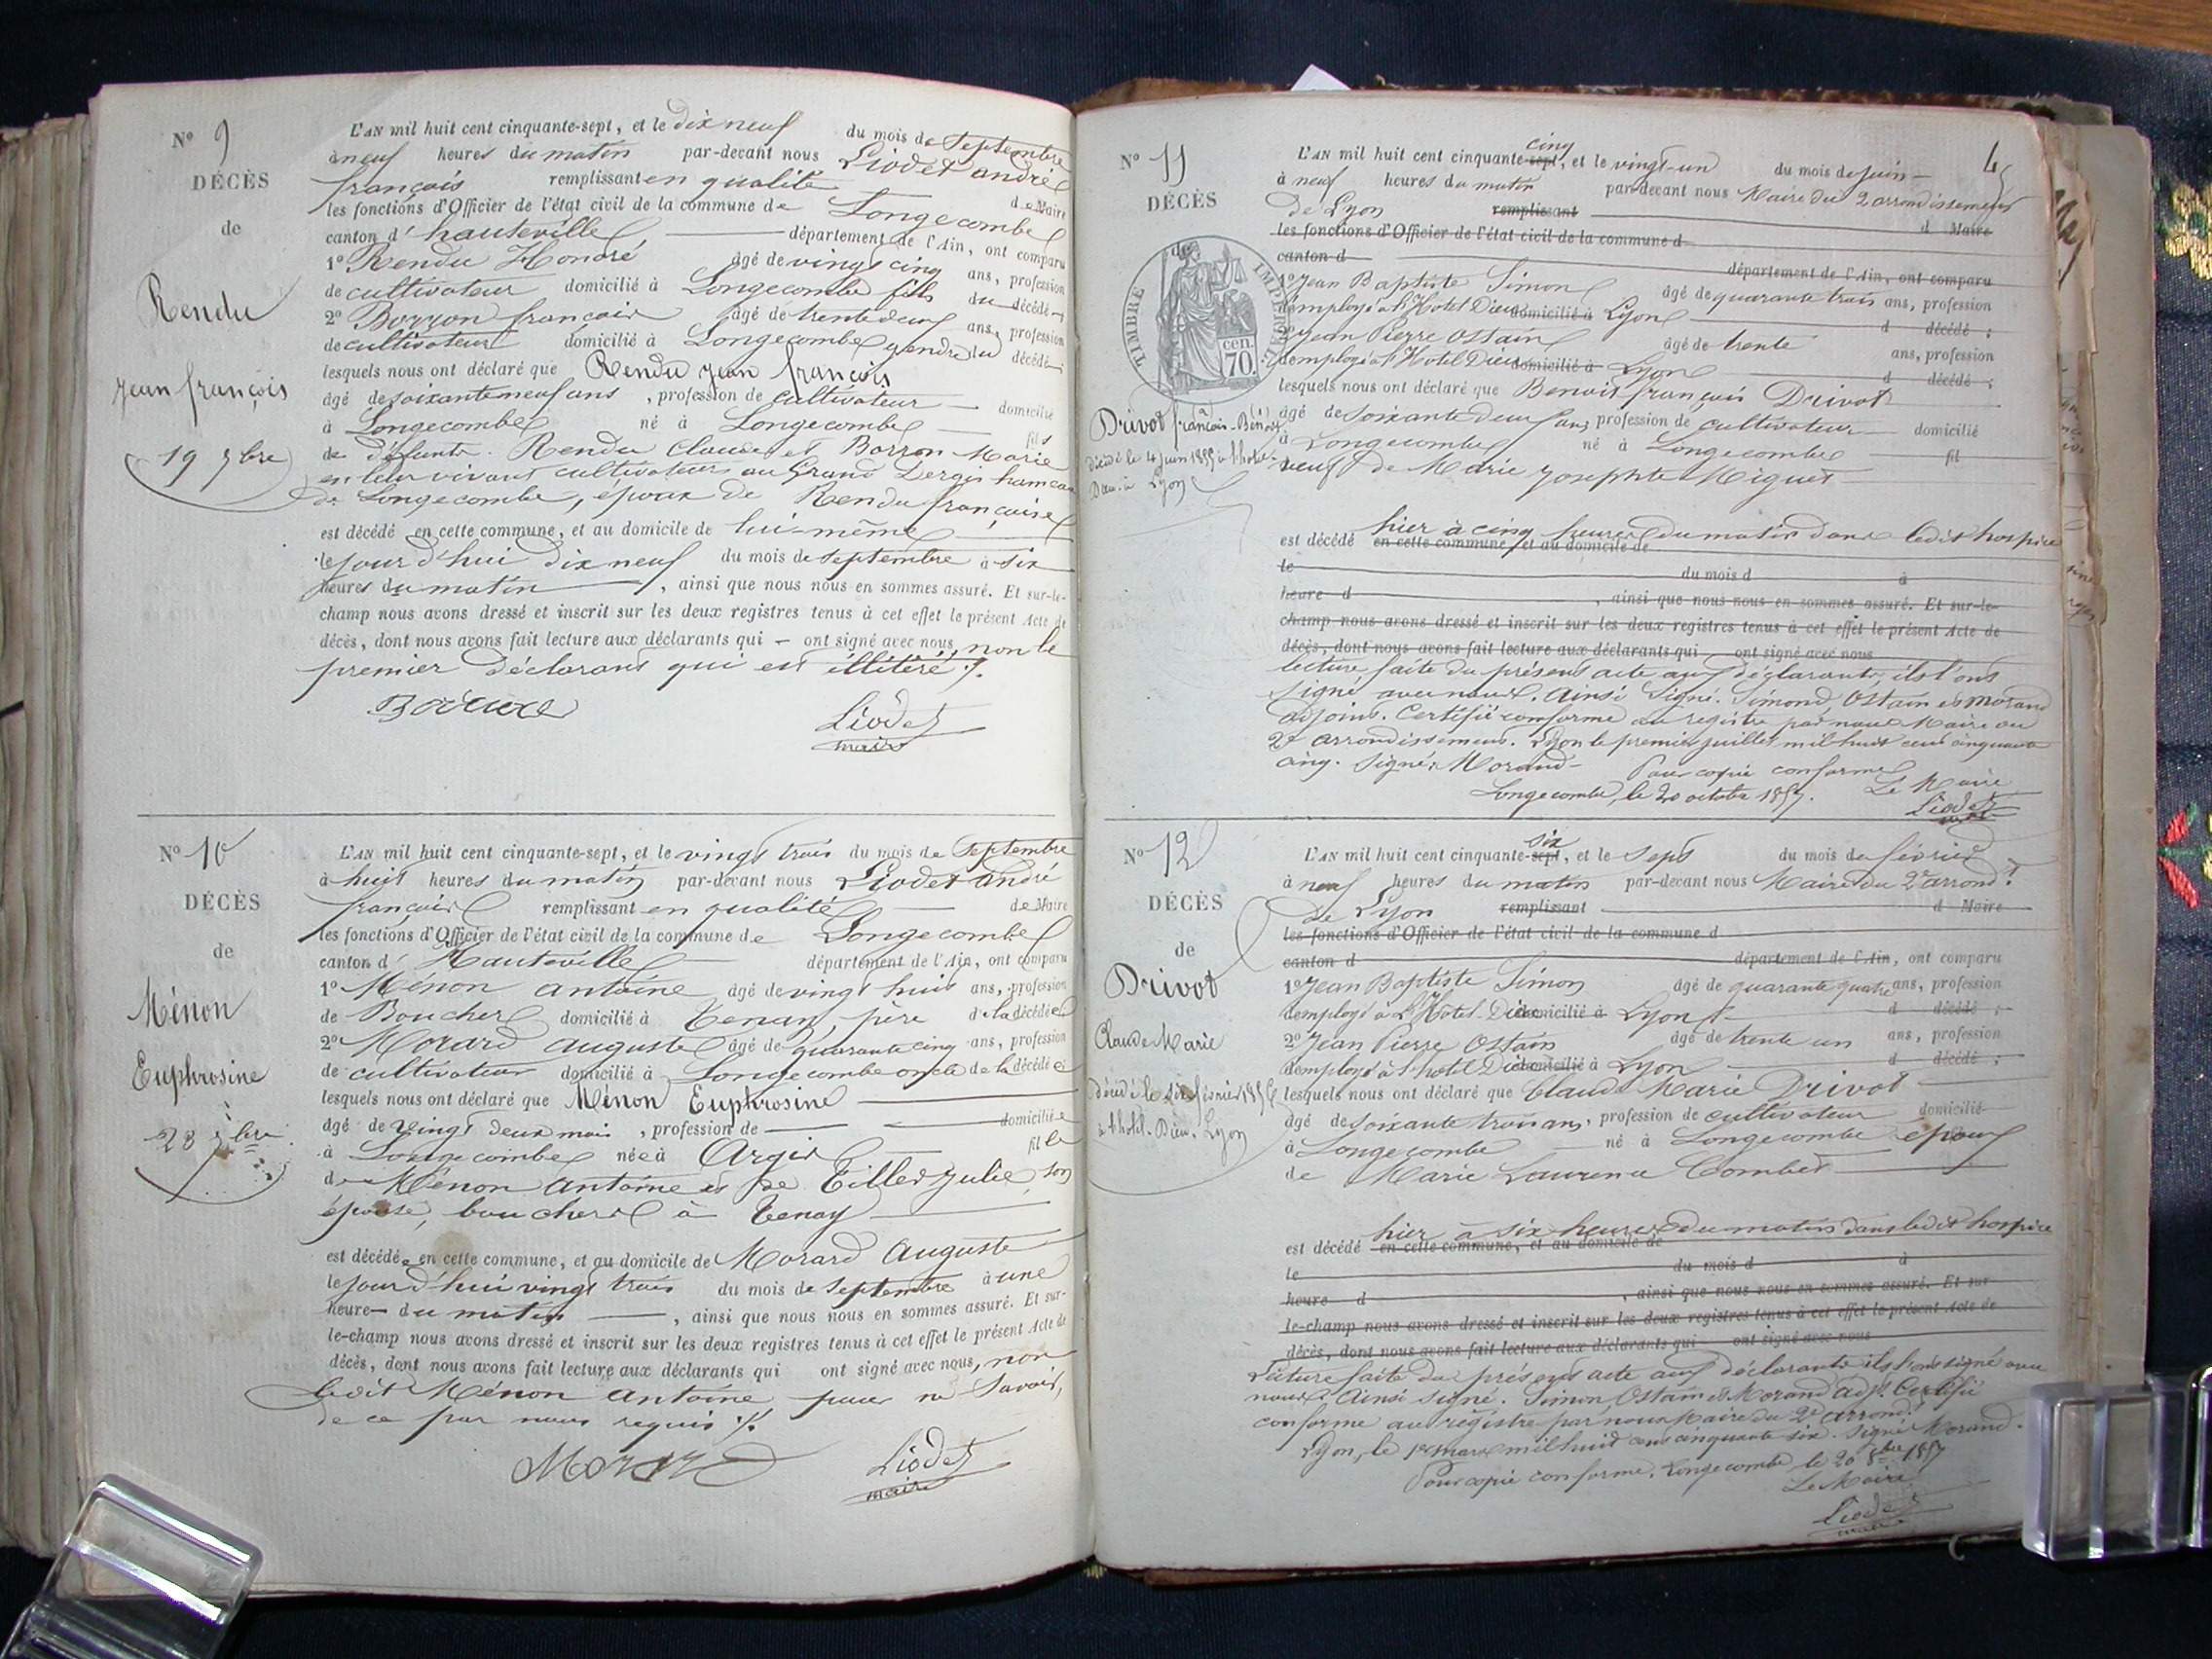 N° 9
DÉCÈS
de
Rendu
Jean françois
19 7bre
L'AN mil huit cent cinquante-sept, et le dix neuf du mois de Septembre
à neuf heures du matin par-devant nous Liodet andré
françois remplissant en qualité de Maire
les fonctions d'Officier de l'état civil de la commune de Longecombe
canton d' hauteville département de l'Ain, ont comparu
1° Rendu Honoré âgé de vingt cinq ans, profession
de cultivateur domicilié à Longecombe fils du décédé
2° Borron françois âgé de trente deux ans, profession
de cultivateur domicilié à Longecombe gendre du décédé
lesquels nous ont déclaré que Rendu Jean françois
âgé de soixante neuf ans, profession de cultivateur domicilié
à Longecombe né à Longecombe fils
de défunts Rendu Claude et Borron Marie
en leur vivant cultivateurs au Grand Dergis hameau
de Longecombe, époux de Rendu françoise
est décédé en cette commune, et au domicile de lui-même
le jour d'hui dix neuf du mois de septembre à six
heures du matin, ainsi que nous nous en sommes assuré. Et sur-le-
champ nous avons dressé et inscrit sur les deux registres tenus à cet effet le présent Acte de
décès, dont nous avons fait lecture aux déclarants qui — ont signé avec nous, non le
premier déclarant qui est illitéré ./.
Liodet
maire
N° 10
DÉCÈS
de
Ménon
Euphrosine
23 7bre
L'AN mil huit cent cinquante-sept, et le vingt trois du mois de Septembre
à huit heures du matin par-devant nous Liodet andré
françois remplissant en qualité de Maire
les fonctions d'Officier de l'état civil de la commune de Longecombe
canton d' Hauteville département de l'Ain, ont comparu
1° Ménon antoine âgé de vingt huit ans, profession
de Boucher domicilié à Tenay, père de la décédée
2° Morard auguste âgé de quarante cinq ans, profession
de cultivateur domicilié à Longecombe oncle de la décédée
lesquels nous ont déclaré que Ménon Euphrosine
âgé de vingt deux mois, profession de domiciliée
à Longecombe née à Argis fille
de Ménon antoine et de Tiller Julie, son
épouse, bouchers à Tenay
est décédée en cette commune, et au domicile de Morard auguste
le jour d'hui vingt trois du mois de septembre à une
heure du matin, ainsi que nous nous en sommes assuré. Et sur-
le-champ nous avons dressé et inscrit sur les deux registres tenus à cet effet le présent Acte de
décès, dont nous avons fait lecture aux déclarants qui ont signé avec nous, non
ledit Ménon antoine pour ne savoir,
de ce par nous requis ./.
Liodet
maire
N° 11
DÉCÈS
de
TIMBRE IMPÉRIAL
70. cen.
Drivot françois-Bénoit
décédé le 4 juin 1855 à l'hotel-
Dieu à Lyon
L'AN mil huit cent cinquante-sept cinq, et le vingt-un du mois de juin
à neuf heures du matin par-devant nous Maire du 2 arrondissement
de Lyon remplissant d Maire
les fonctions d'Officier de l'état civil de la commune d
canton d département de l'Ain, ont comparu
1° Jean Baptiste Simon âgé de quarante trois ans, profession
d'employé à l'Hotel Dieu domicilié à Lyon d décédé ;
2° Jean Pierre Ostain âgé de trente ans, profession
d'employé à l'Hotel Dieu domicilié à Lyon d décédé ;
lesquels nous ont déclaré que Benoit françois Drivot
âgé de soixante deux ans, profession de cultivateur domicilié
à Longecombe né à Longecombe fil
veuf de Marie Josephte Miguet
hier à cinq heures du matin dans ledit hospice
est décédé en cette commune, et au domicile de
le du mois d à
heure d , ainsi que nous nous en sommes assuré. Et sur-le-
champ nous avons dressé et inscrit sur les deux registres tenus à cet effet le présent Acte de
décès, dont nous avons fait lecture aux déclarants qui ont signé avec nous
lecture faite du présent acte aux déclarants, ils l'ont
signé avec nous. Ainsi signé. Simond, Ostain et Morand
adjoint. Certifié conforme au registre par nous Maire du
2e arrondissement. Lyon le premier juillet mil huit cent cinquante
cinq. Signé: Morand-
Pour copie conforme
Longecombe, le 20 octobre 1857. Le Maire
Liodet
maire
N° 12
DÉCÈS
de
Drivot
Claude Marie
décédé le six février 1856
à l'hotel-Dieu, Lyon
L'AN mil huit cent cinquante-sept six, et le Sept du mois de février
à neuf heures du matin par-devant nous Maire du 2e arrond.t
de Lyon remplissant d Maire
les fonctions d'Officier de l'état civil de la commune d
canton d département de l'Ain, ont comparu
1° Jean Baptiste Simon âgé de quarante quatre ans, profession
d'employé à l'Hotel-Dieu domicilié à Lyon d décédé ;
2° Jean Pierre Ostain âgé de trente un ans, profession
d'employé à l'hotel Dieu domicilié à Lyon d décédé ;
lesquels nous ont déclaré que Claude Marie Drivot
âgé de soixante trois ans, profession de cultivateur domicilié
à Longecombe né à Longecombe époux
de Marie Laurence Combet
hier à six heures du matin dans ledit hospice
est décédé en cette commune, et au domicile de
le du mois d à
heure d , ainsi que nous nous en sommes assuré. Et sur-
le-champ nous avons dressé et inscrit sur les deux registres tenus à cet effet le présent Acte de
décès, dont nous avons fait lecture aux déclarants qui ont signé avec nous
Lecture faite du présent acte aux déclarants ils l'ont signé avec
nous. Ainsi signé. Simon, Ostain et Morand adj.t Certifié
conforme au registre par nous Maire du 2e arrond.t
Lyon, le 1er mars mil huit cent cinquante six. Signé Morand.
Pour copie conforme. Longecombe le 20 8bre 1857
Le Maire
Liodet
maire